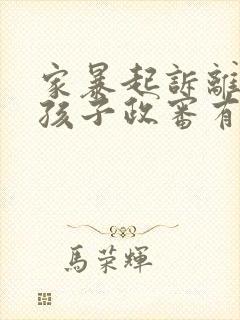 家暴起訴離
孩子政審有
馬荣輝